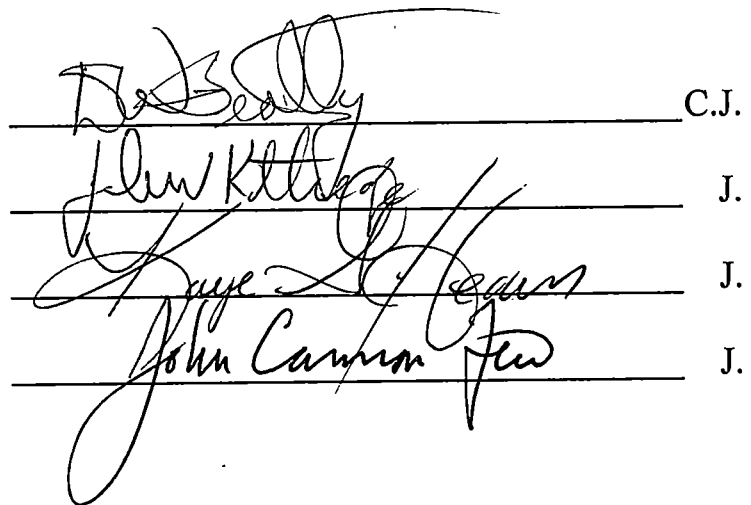 Don Beatty C.J.
John Kittredge J.
Kaye G. Hearn J.
John Cannon Few J.